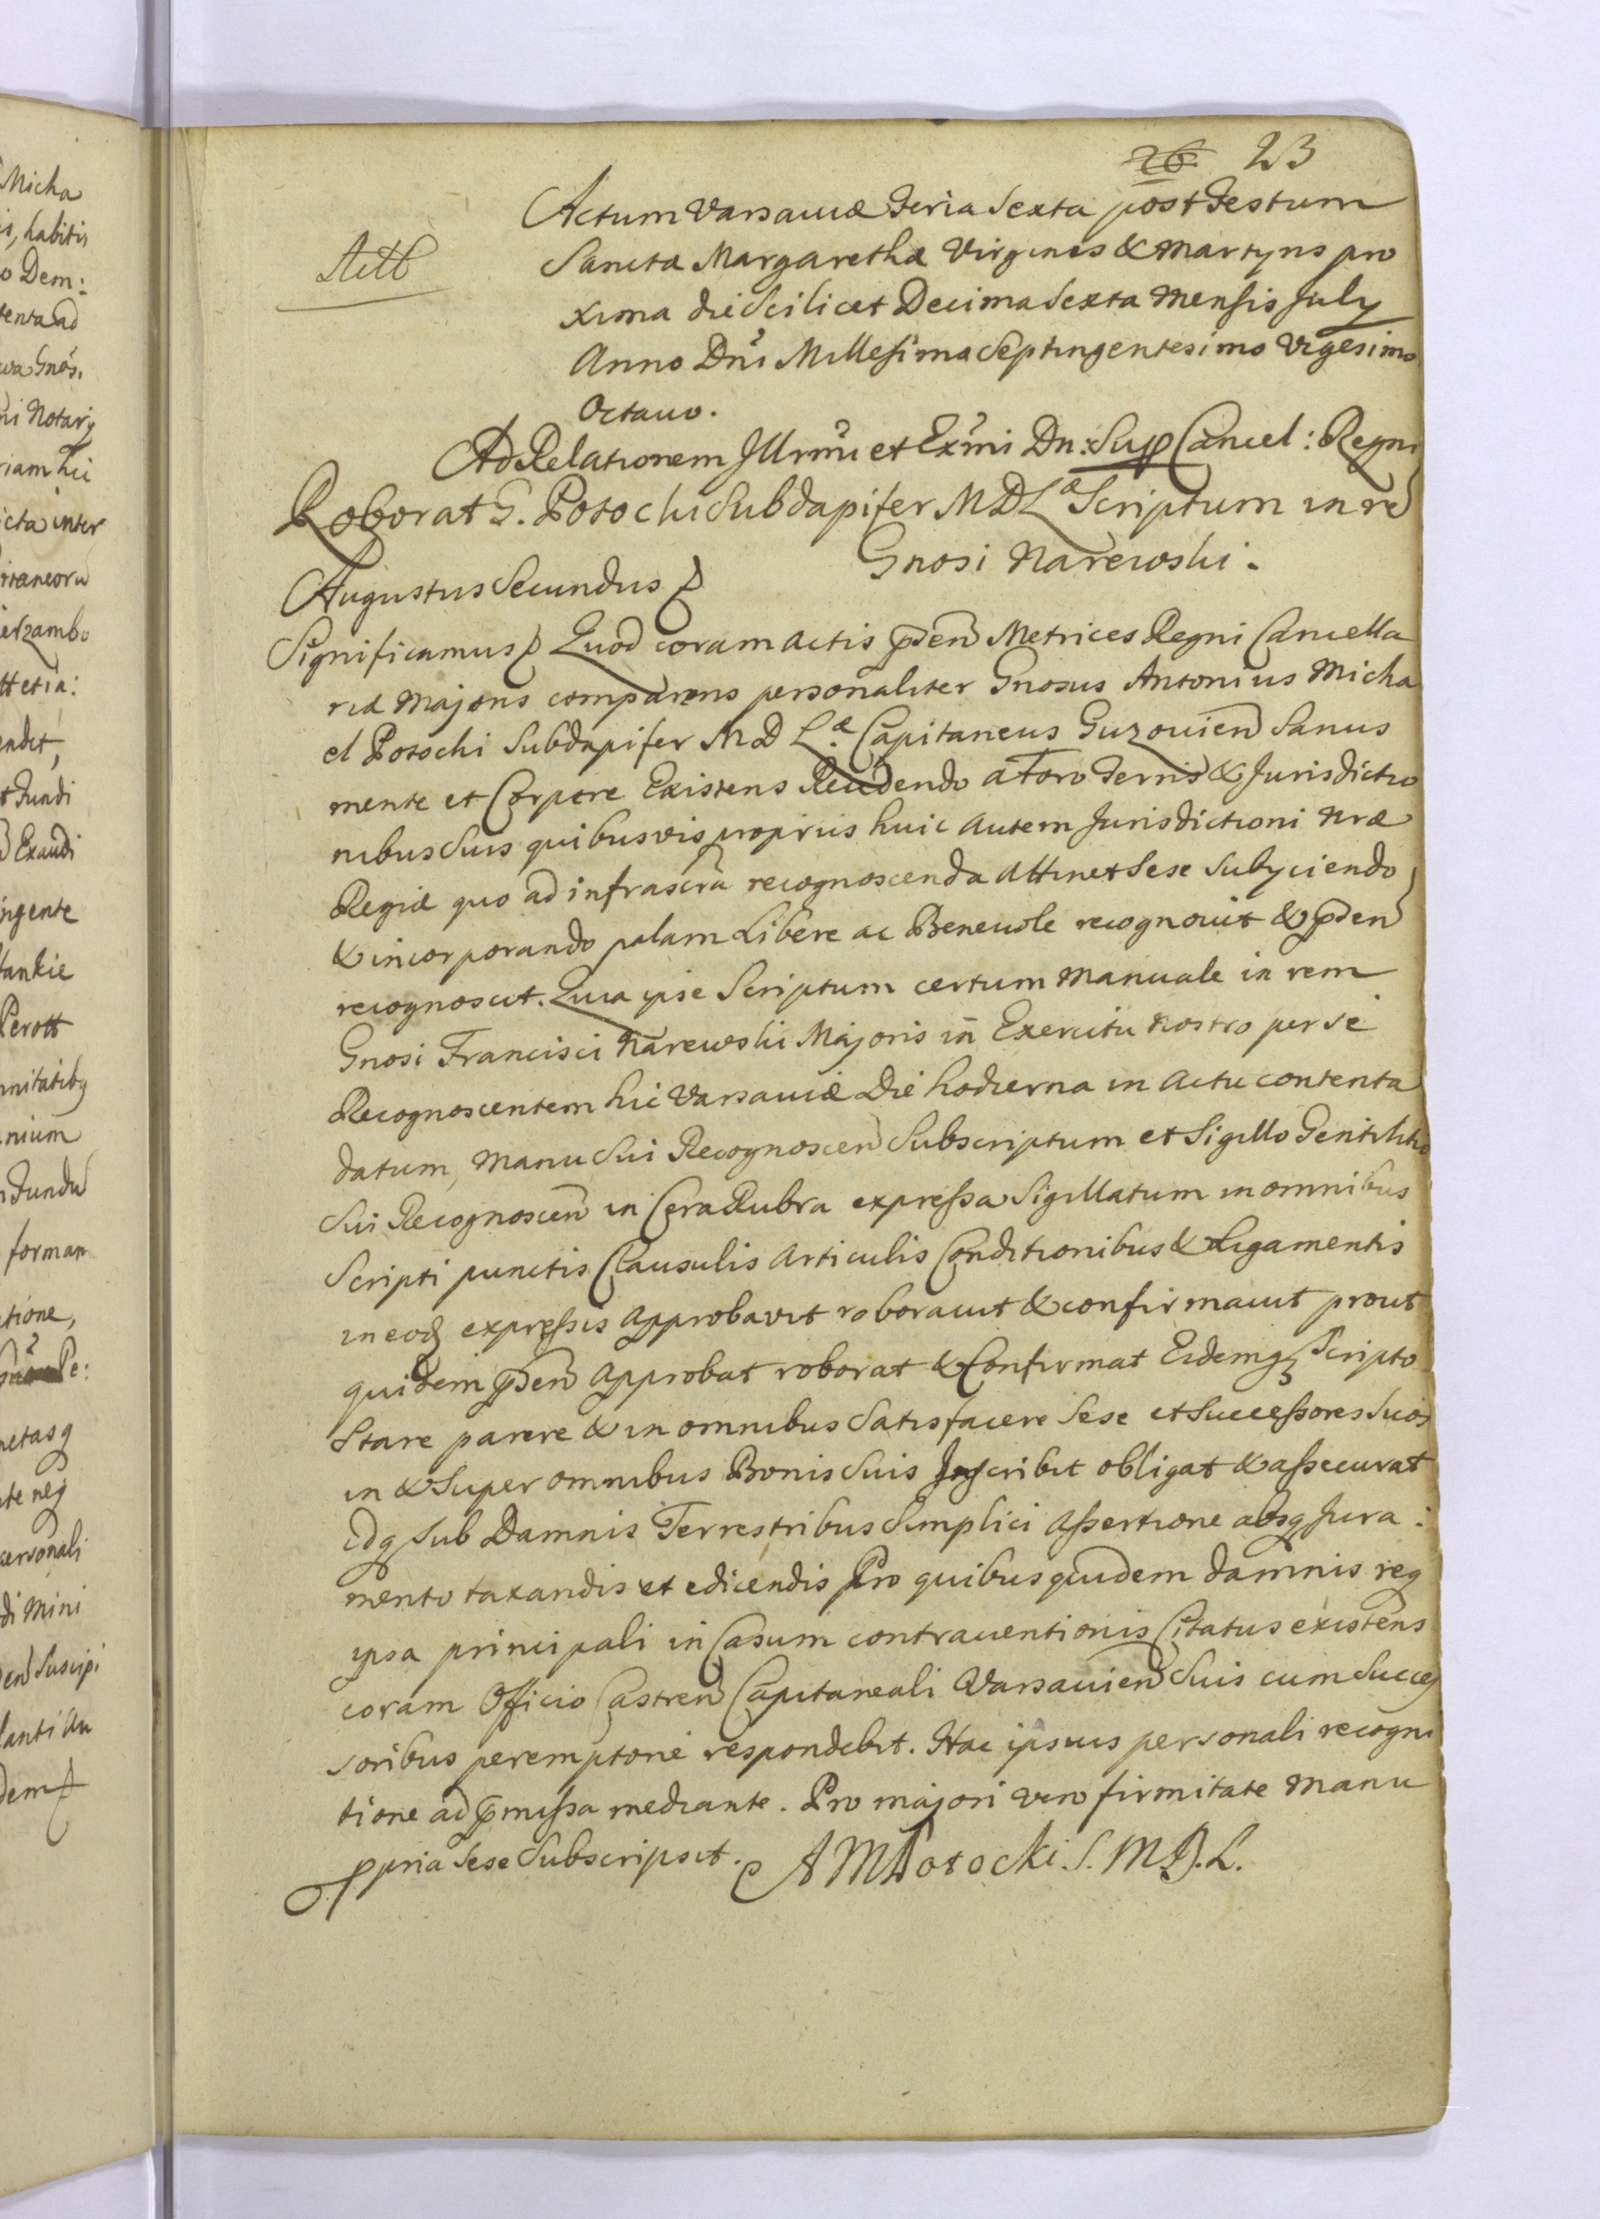 26 23
Actum Varsaviæ Feria Sexta post Festum
Sanctæ Margarethæ Virginis & Martyris pro
xima die Scilicet Decima Sexta Mensis July
Anno Dnĩ Millesimo Septingentesimo Vigesimo
Octavo.
Ad Relationem Illrmĩ et Exmĩ Dn: Supp Cancel: Regni
Roborat G. Potocki Subdapifer MDLæ Scriptum in re
Gnosi Narewski.
Augustus Secundus
Significamus Quod coram Actis pñsen Metrices Regni Cancella
riæ Majoris comparens personaliter Gnosus Antonius Micha
el Potocki Subdapifer M D L.æ Capitaneus Guzovien Sanus
mente et Corpore Existens Recedendo a Foro Terris & Jurisdictio
nibus Suis quibusvis proprijs huic autem Jurisdictioni Nræ
Regiæ quo ad infrascra recognoscenda Attinet Sese Subyciendo
& incorporando palam Libere ac Benevole recognovit & pñsen
recognoscit. Quia ipse Scriptum certum Manuale in rem
Gnosi Francisci Narewski Majoris in Exercitu Nostro per se
Recognoscentem hic Varsaviæ Die hodierna in Actu contenta
datum, Manu Sui Recognoscen Subscriptum et Sigillo Gentilitio
Sui Recognoscen in Cera Rubra expressa Sigillatum in omnibus
Scripti punctis Clausulis Articulis Conditionibus & Ligamentis
in eod expressis Approbavit roboravit & confirmavit prout
quidem pñsen Approbat roborat & Confirmat Eidemq Scripto
Stare parere & in omnibus Satisfacere Sese et Successores Suos
in & Super omnibus Bonis Suis Inscribit obligat & assecurat
Idq Sub Damnis Terrestribus Simplici Assertione absq Jura:
mento taxandis et edicendis Pro quibus quidem damnis req
ipsa principali in Casum contraventionis Citatus existens
coram Officio Castren Capitaneali Varsavien Suis cum Succes
soribus peremptorie respondebit. Hac ipsius personali recogni
tione ad pmissa mediante. Pro majori vero firmitate Manu
ppria Sese Subscripsit. AMPotocki. S. M D. L.